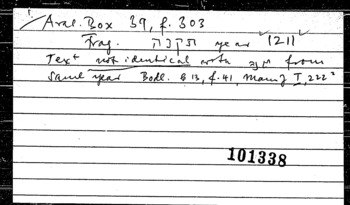 Arab. Box 39, f. 303
Frag. תקנה year "1211"
Text not identical with from
same year Bodl. e 13, f. 41, Mann I, 222²
101338